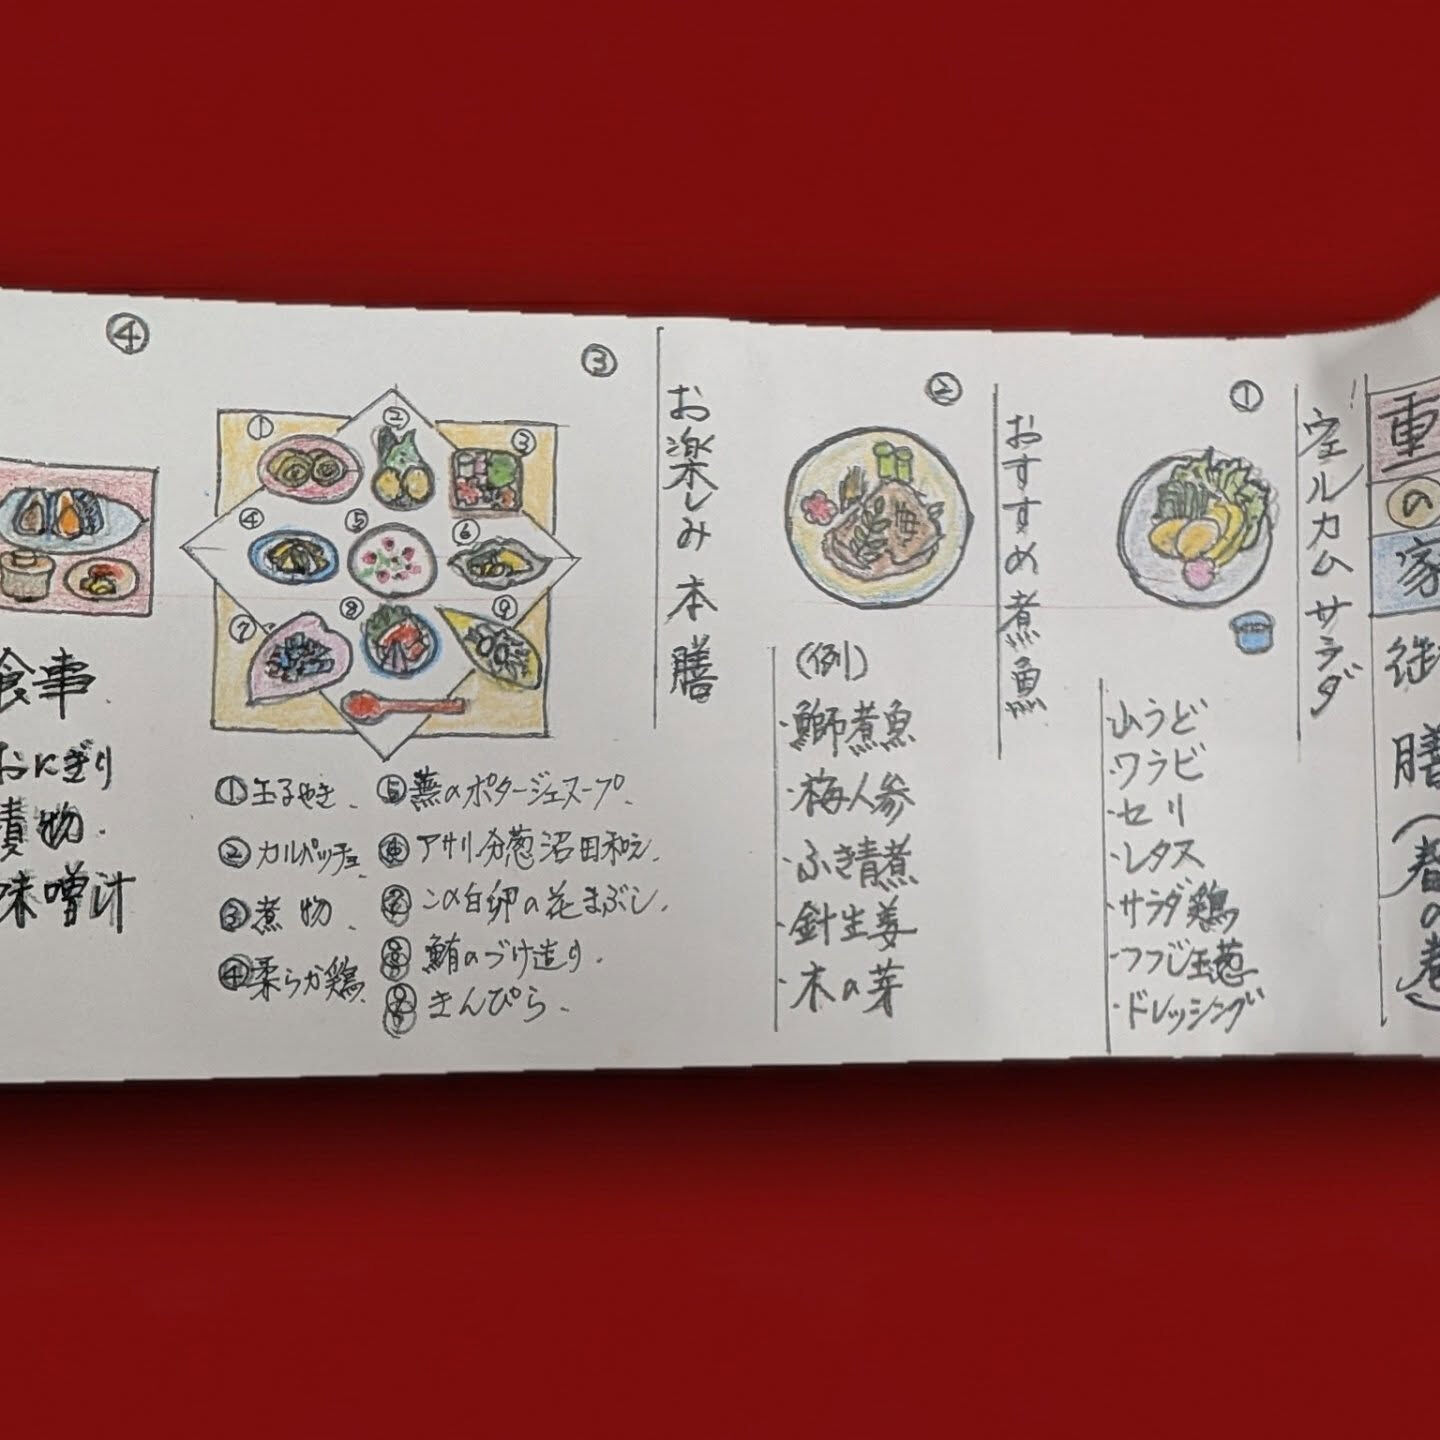 重の家
膳(春の巻)
ウェルカムサラダ
①
・山うど
・ワラビ
・セリ
・レタス
・サラダ鶏
・ドレッシング
おすすめ煮魚
②
(例)
・鰤煮魚
・梅人参
・ふき青煮
・針生姜
・木の芽
お楽しみ本膳
③
①
②
③
④
⑤
⑥
⑦
⑧
⑨
①玉子やき.
②カルパッチョ
③煮物.
④柔らか鶏.
⑤蕪のポタージュスープ.
⑥アサリ分葱沼田和え.
⑦この白卵の花まぶし.
⑧鮪のづけ造り.
⑨きんぴら.
④
食事.
おにぎり
漬物.
味噌汁